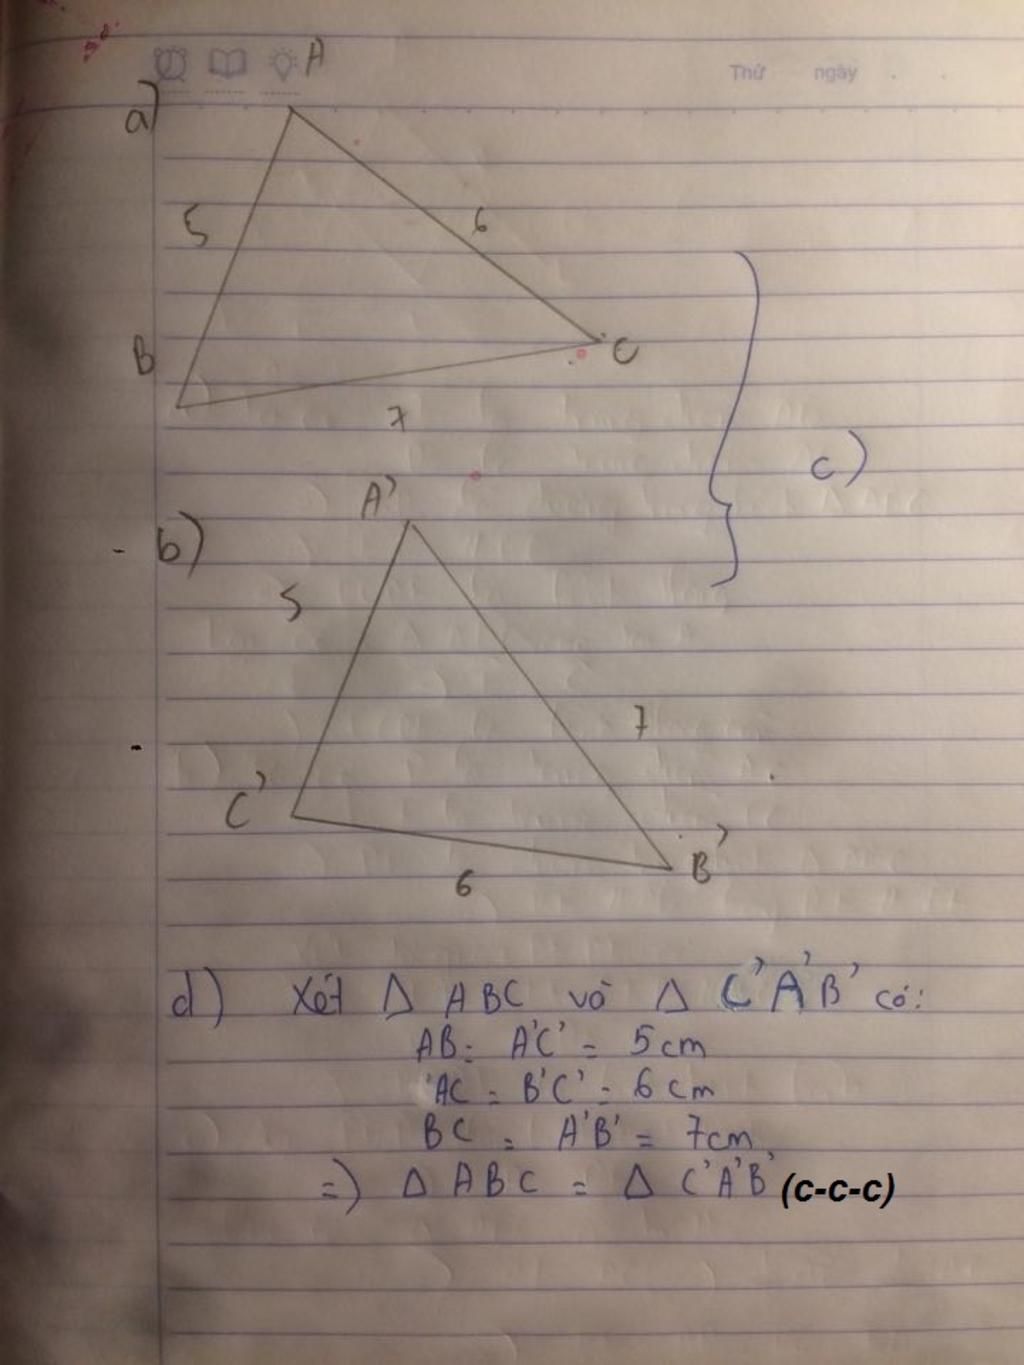 Thứ ngày
A
a)
5
6
B
C
7
c)
A'
b)
5
7
C'
B'
6
d) Xét Δ ABC và Δ C'A'B' có:
AB = A'C' = 5cm
AC = B'C' = 6cm
BC = A'B' = 7cm
=) Δ ABC = Δ C'A'B' (c-c-c)